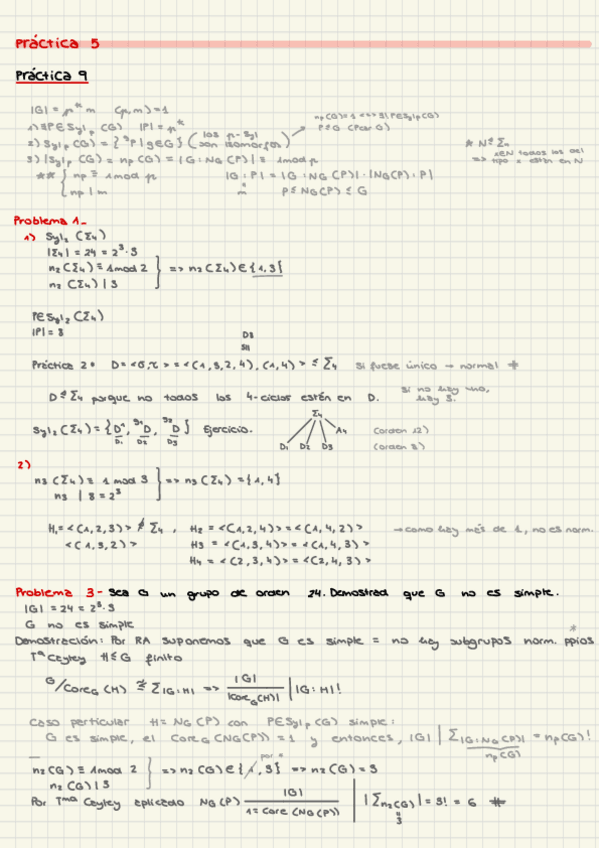 Práctica 5
Práctica 9
|G| = p^k m (p,m)=1
1) ∃P∈Syl_p(G) |P|=p^k
2) Syl_p(G) = {^gP | g∈G} (los p-Syl son isomorfos)
n_p(G)=1 <=> si P∈Syl_p(G)
P⊴G (Por 2)
3) |Syl_p(G)| = n_p(G) = |G:N_G(P)| ≡ 1 mod p
** { n_p ≡ 1 mod p
n_p | m
|G:P| = |G:N_G(P)|·|N_G(P):P|
m P≤N_G(P)≤G
* N⊴Σ_n
todos los del
=> tipo x están en N
Problema 1_
1) Syl_2(Σ_4)
|Σ_4| = 24 = 2^3·3
n_2(Σ_4) ≡ 1 mod 2
n_2(Σ_4) | 3
=> n_2(Σ_4) ∈ {1,3}
P∈Syl_2(Σ_4)
|P| = 8
D8
Práctica 2: D=<σ,τ> = <(1,3,2,4),(1,4)> ≤ Σ_4 si fuese único → normal #
D⋬Σ_4 porque no todos los 4-ciclos están en D.
si no hay uno, hay 3.
Syl_2(Σ_4) = {D^1, ^{g1}D, ^{g2}D} Ejercicio.
D_1 D_2 D_3
Σ_4
D_1 D_2 D_3 A_4
(orden 12)
(orden 8)
2)
n_3(Σ_4) ≡ 1 mod 3
n_3 | 8 = 2^3
=> n_3(Σ_4) = {1,4}
H_1 = <(1,2,3)> ⋬ Σ_4, H_2 = <(1,2,4)> = <(1,4,2)> → como hay más de 1, no es norm.
<(1,3,2)> H_3 = <(1,3,4)> = <(1,4,3)>
H_4 = <(2,3,4)> = <(2,4,3)>
Problema 3- Sea G un grupo de orden 24. Demostrad que G no es simple.
|G| = 24 = 2^3·3
G no es simple
Demostración: Por RA suponemos que G es simple = no hay subgrupos norm. ppios *
T^a Cayley H≤G finito
G/Core_G(H) ≲ Σ_|G:H| => |G|/|Core_G(H)| | |G:H|!
Caso particular H=N_G(P) con P∈Syl_p(G) simple:
G es simple, el Core_G(N_G(P))=1 y entonces, |G| | Σ_|G:N_G(P)| = n_p(G)!
n_p(G)
n_2(G) ≡ 1 mod 2
n_2(G) | 3
=> n_2(G) ∈ {1,3} => n_2(G) = 3
por *
Por T^ma Cayley aplicado N_G(P) |G|/1=Core(N_G(P)) | |Σ_n2(G)| = 3! = 6 #
3